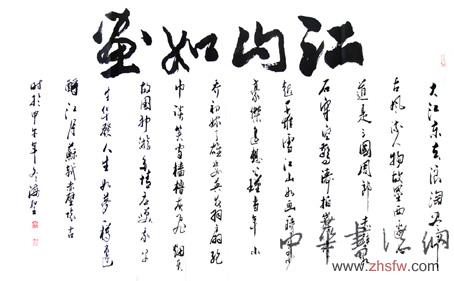 江山如画
大江东去浪淘尽千
古风流人物故垒西边人
道是三国周郎赤壁乱
石穿空惊涛拍岸卷
起千堆雪江山如画一时多少
豪杰遥想公瑾当年小
乔初嫁了雄姿英发羽扇纶
巾谈笑间樯橹灰飞烟灭
故国神游多情应笑我早
生华发人生如梦一尊还
酹江月苏轼赤壁怀古
时于甲午年
中华书法网
www.zhsfw.com